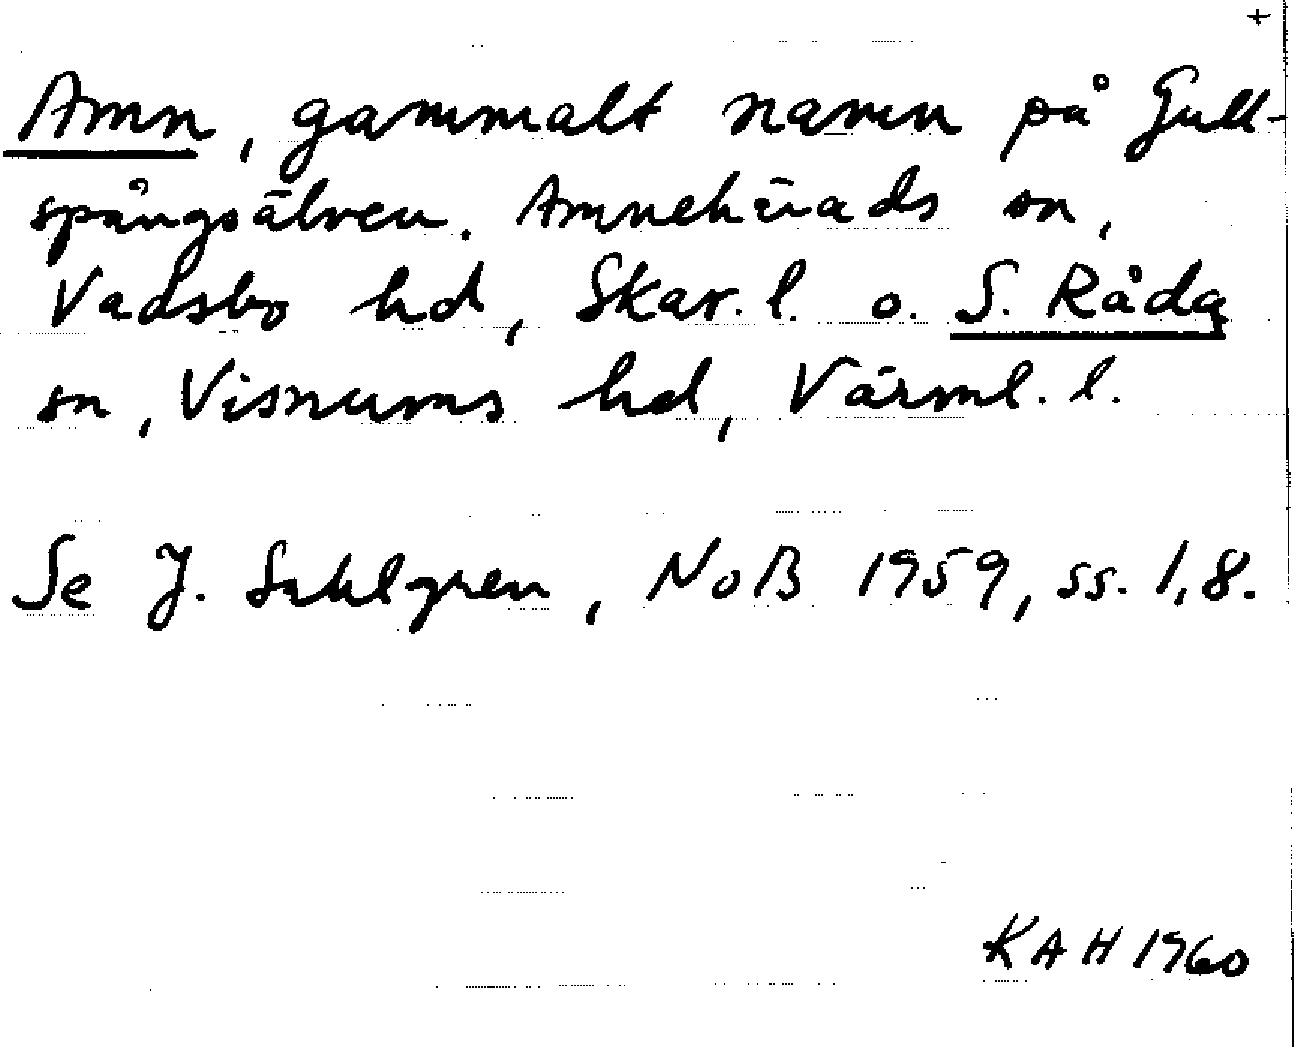 +
Amn, gammalt namn på Gull-
spångsälven. Amnehärads sn,
Vadsbo hd, Skar. l. o. S. Råda
sn, Visnums hd, Värml. l.
Se J. Sahlgren, NoB 1959, ss. 1, 8.
KAH 1960